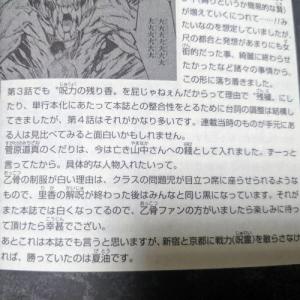 （縛りという簡易的な算）
が増えていくにつれて……!!み
たいなのを想定していましたが、
尺の都合と発想があまりにも女
衝的だった事、綺麗に終われな
かったなど諸々の事情から、
この形に落ち着きました。
第3話でも“呪力の残り香”を屁じゃねぇんだからって話って“残穢”にし
たり、単行本化にあたって本誌との整合性をとるために台詞の調整は結構し
てきましたが、第4話はそれがかなり多いです。連載当時のものが手元に
ある人は見比べてみると面白いかもしれません。
菅原道真のくだりは、今は亡き山中さんへの餞として入れました。ずーっと
言ってたから。具体的な人物入れたいって。
乙骨の制服が白い理由は、クラスの問題児が目立つ席に座らせられるような
もので、里香の解呪が終わった後はみんなと同じ黒になっています。それが
また本誌では白くなってるので、乙骨ファンの方がいましたら楽しみに待っ
て頂けたら幸甚でござい。
あとこれは本誌でも言うと思いますが、新宿と京都に戦力(呪霊)を散らさなけ
れば、勝っていたのは夏油です。